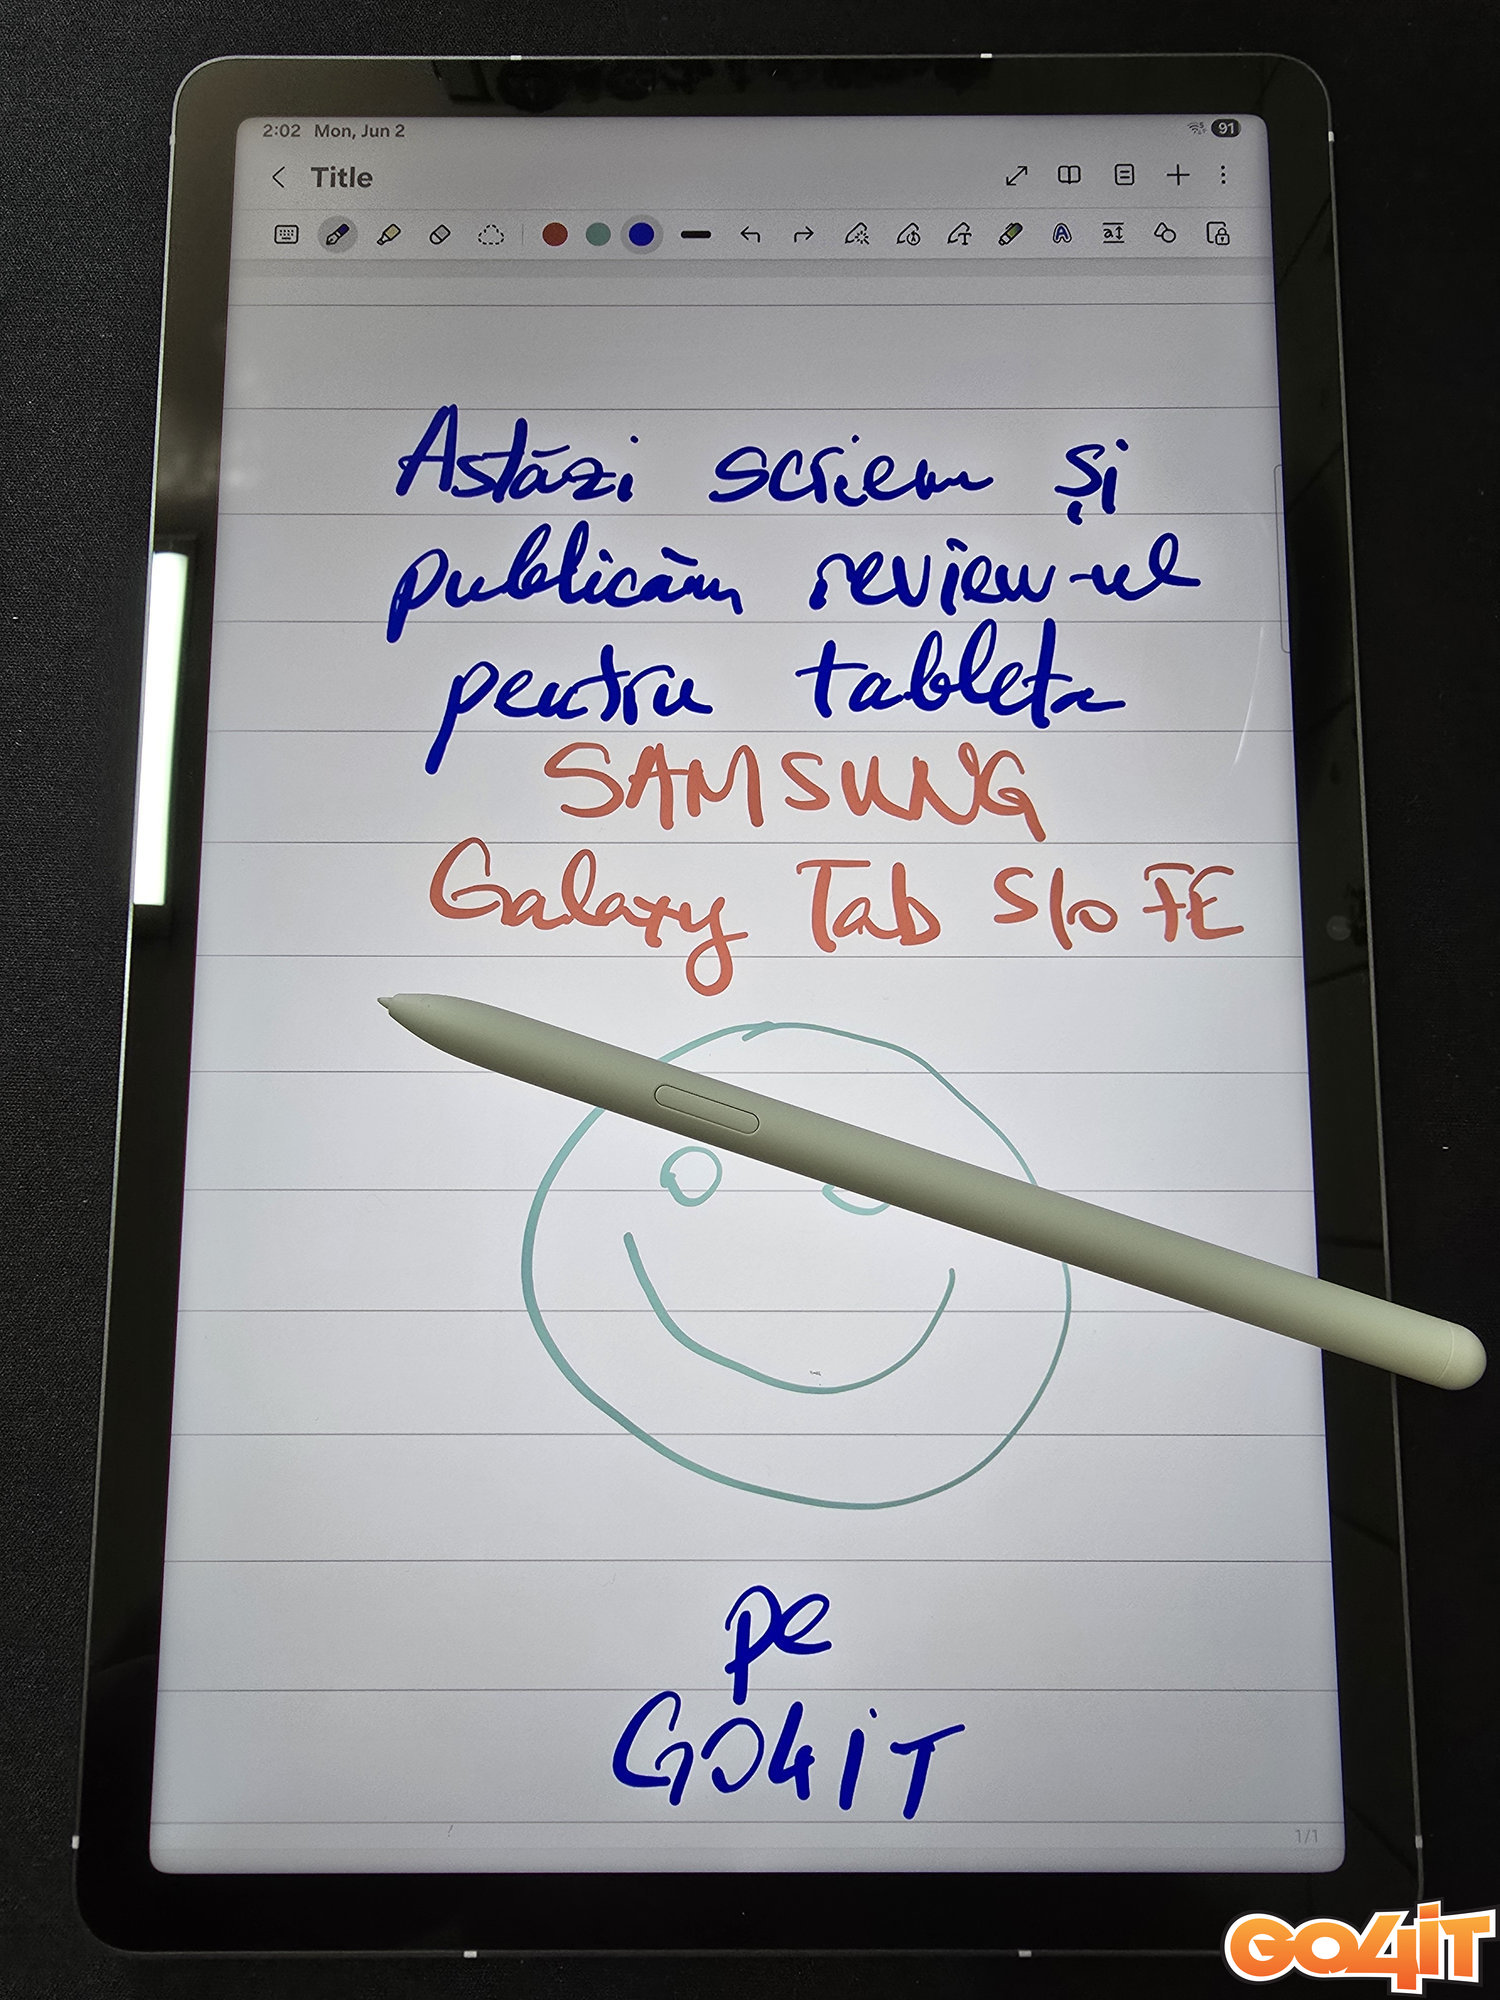 2:02 Mon, Jun 2
91
Title
Astăzi scriem și
publicăm review-ul
pentru tableta
SAMSUNG
Galaxy Tab S10 FE
pe
GO4iT
1/1
GO4iT